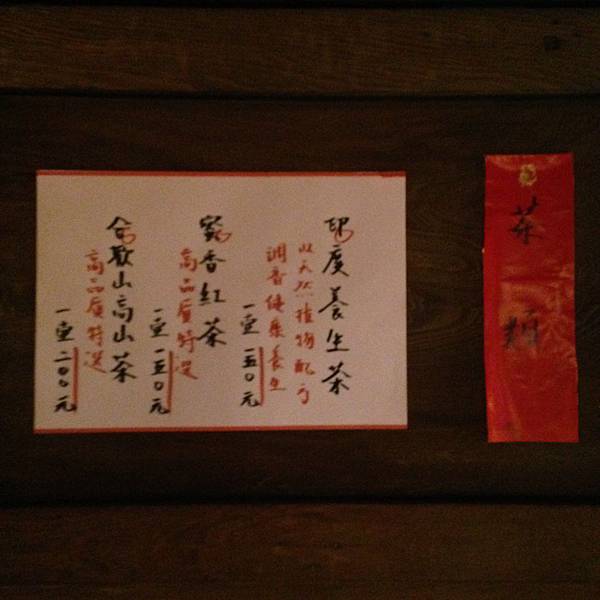 茶類
印度養生茶
以天然植物配方
調香健康養生
一壺一五〇元
蜜香紅茶
高品質特選
一壺一五〇元
合歡山高山茶
高品質特選
一壺二〇〇元